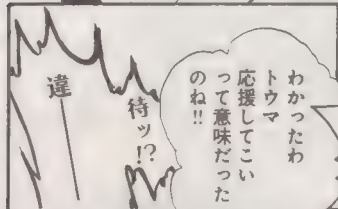 わかったわ
トウマ
応援してこい
って意味だった
のね!!
待ッ!?
違――